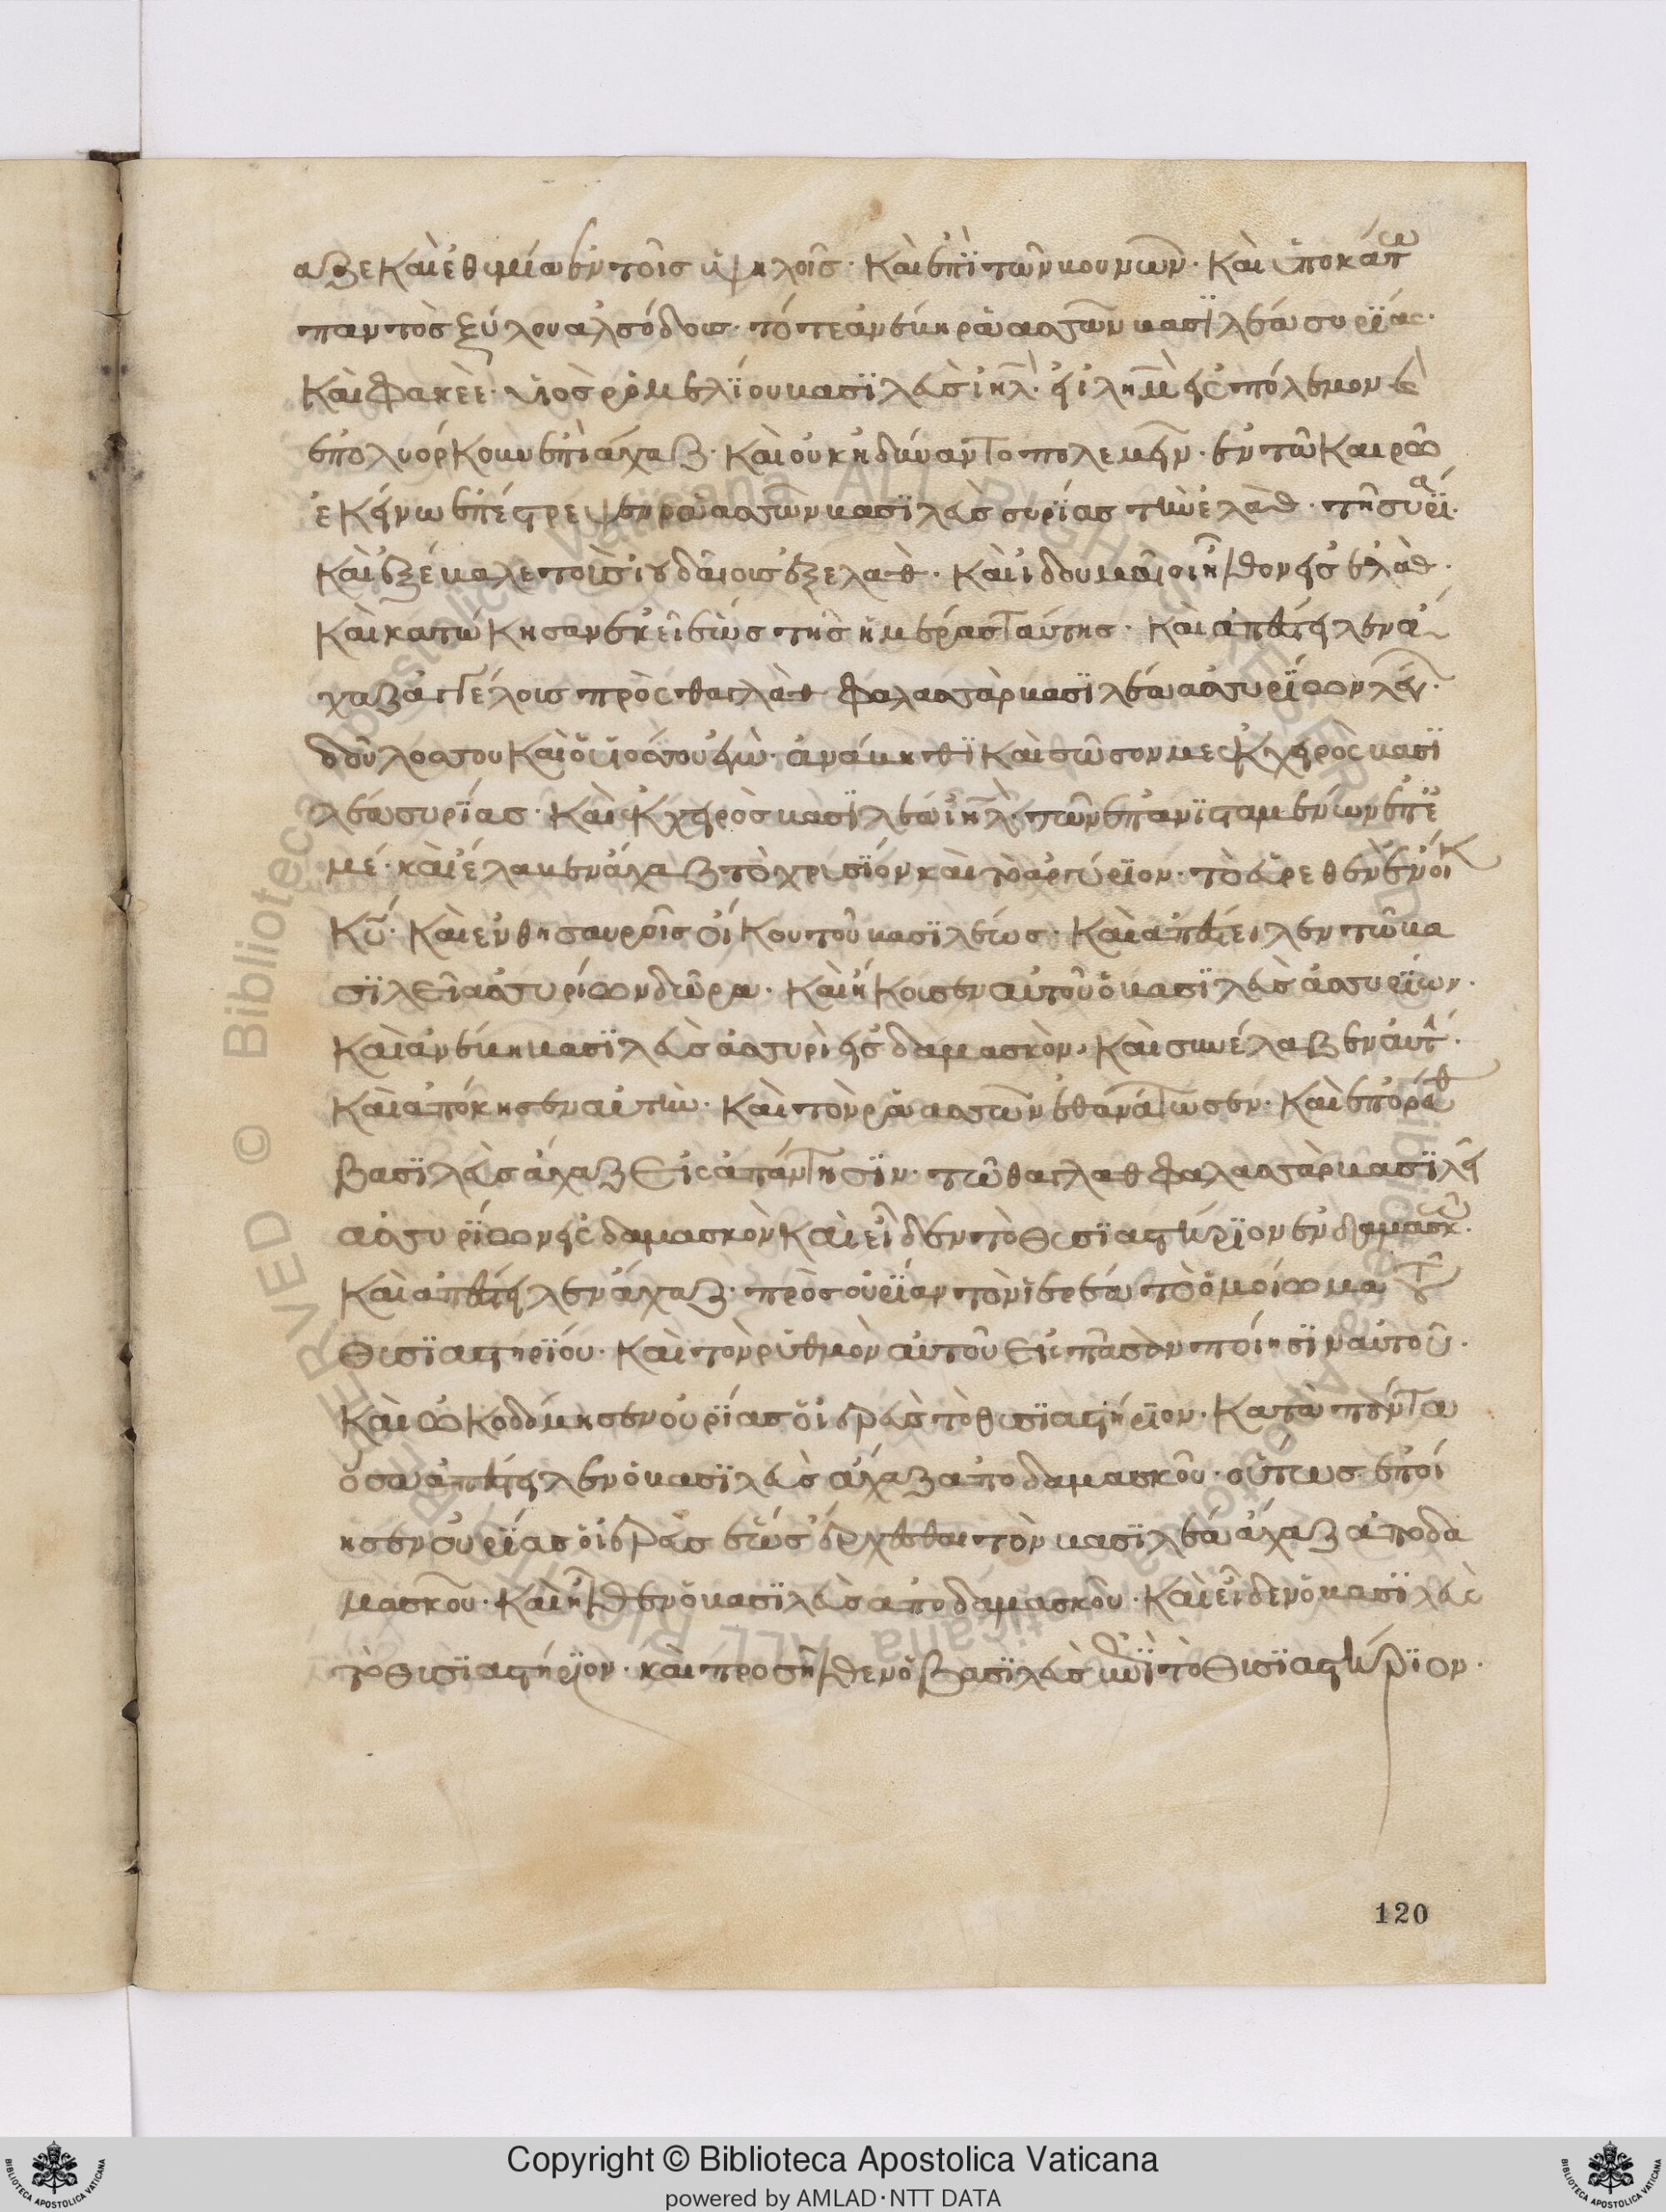 αζε καὶ ἐθυμία ἐν τοῖς ὑψηλοῖς· καὶ ἐπῒ τῶν βουνῶν· καὶ ὑποκάτω
παντὸς ξύλου ἀλσώδους· τότε ἀνέβη ῥαασσὼν βασϊλέα συρΐας·
καὶ φακεὲ· υἱὸς ῥομελΐου βασϊλεὺς ἰηλ· εἰς ἰλημ εἰς πόλεμον· καὶ
ἐπολυόρκουν ἐπὶ ἀχαζ· καὶ οὐκ ἠδύναντο πολεμεῖν· ἐν τῶ καιρῶ
ἐκείνω ἐπέστρεψεν ῥαασσὼν βασϊλεὺς συρΐας τὴν ἐλὰθ· τῆ συρΐα·
καὶ ἐξέβαλε τοὺς ἰουδαίους ἐξ ἐλαθ· καὶ ἰδουμαῖοι ἦλθον εἰς ἐλὰθ·
καὶ κατώκησαν ἐκεῖ ἕως τῆς ἡμέρας ταύτης· καὶ ἀπέστειλεν ἄ
χαζ ἀγγέλους πρὸς θαγλὰθ φαλασσὰρ βασϊλέα ἀσσυρΐων λέγων·
δοῦλος σου καὶ ὁ υἱός σου ἐγὼ· ἀνάβηθϊ καὶ σῶσον με ἐκ χειρὸς βασϊ
λέως συρΐας· καὶ ἐκ χειρὸς βασϊλέως ἰηλ· τῶν ἐπανϊσταμένων ἐπ' ἐ
μέ· καὶ ἔλαβεν ἄχαζ τὸ χρυσΐον καὶ τὸ ἀργύρϊον· τὸ εὑρεθὲν ἐν οἴκω
κῦ· καὶ ἐν θησαυροῖς οἴκου τοῦ βασϊλέως· καὶ ἀπέστειλεν τῶ βα
σϊλεῖ ἀσσυρΐων δῶρα· καὶ ἤκουσεν αὐτοῦ ὁ βασϊλεὺς ἀσσυρΐων·
καὶ ἀνέβη βασϊλεὺς ἀσσυρὶ εἰς δαμασκὸν· καὶ συνέλαβεν αὐτ·
καὶ ἀπόκησεν αὐτὴν· καὶ τὸν ῥαασσὼν ἐθανάτωσεν· καὶ ἐπορεύθη
βασϊλεὺς ἄχαζ εἰς ἀπάντησϊν· τῶ θαγλαθ φαλασσὰρ βασϊλεῖ
ἀσσυρΐων εἰς δαμασκὸν καὶ εἶδεν τὸ θυσϊαστήρϊον ἐν δαμασκῶ·
καὶ ἀπέστειλεν ἄχαζ· πρὸς οὐρΐαν τὸν ἱερέα τὸ ὁμοίωμα τοῦ
θυσϊαστηρΐου· καὶ τὸν ῥυθμὸν αὐτοῦ εἰς πᾶσαν ποίησϊν αὐτοῦ·
καὶ ὠκοδόμησεν οὐρΐας ὁ ἱερεὺς τὸ θυσϊαστήρϊον· κατὰ πάντα
ὅσα ἀπέστειλεν ὁ βασϊλεὺς ἄχαζ ἀπο δαμασκοῦ· οὕτως ἐποί
ησεν οὐρΐας ὁ ἱερεὺς ἕως ἔρχεσθαι τὸν βασϊλέα ἄχαζ ἀπο δα
μασκοῦ· καὶ ἦλθεν ὁ βασϊλεὺς ἀπο δαμασκοῦ· καὶ εἶδεν ὁ βασϊλεὺς
τὸ θυσϊαστήρϊον· καὶ προσῆλθεν ὁ βασϊλεὺς ἐπὶ τὸ θυσϊαστήρϊον·
120
Copyright © Biblioteca Apostolica Vaticana
powered by AMLAD·NTT DATA